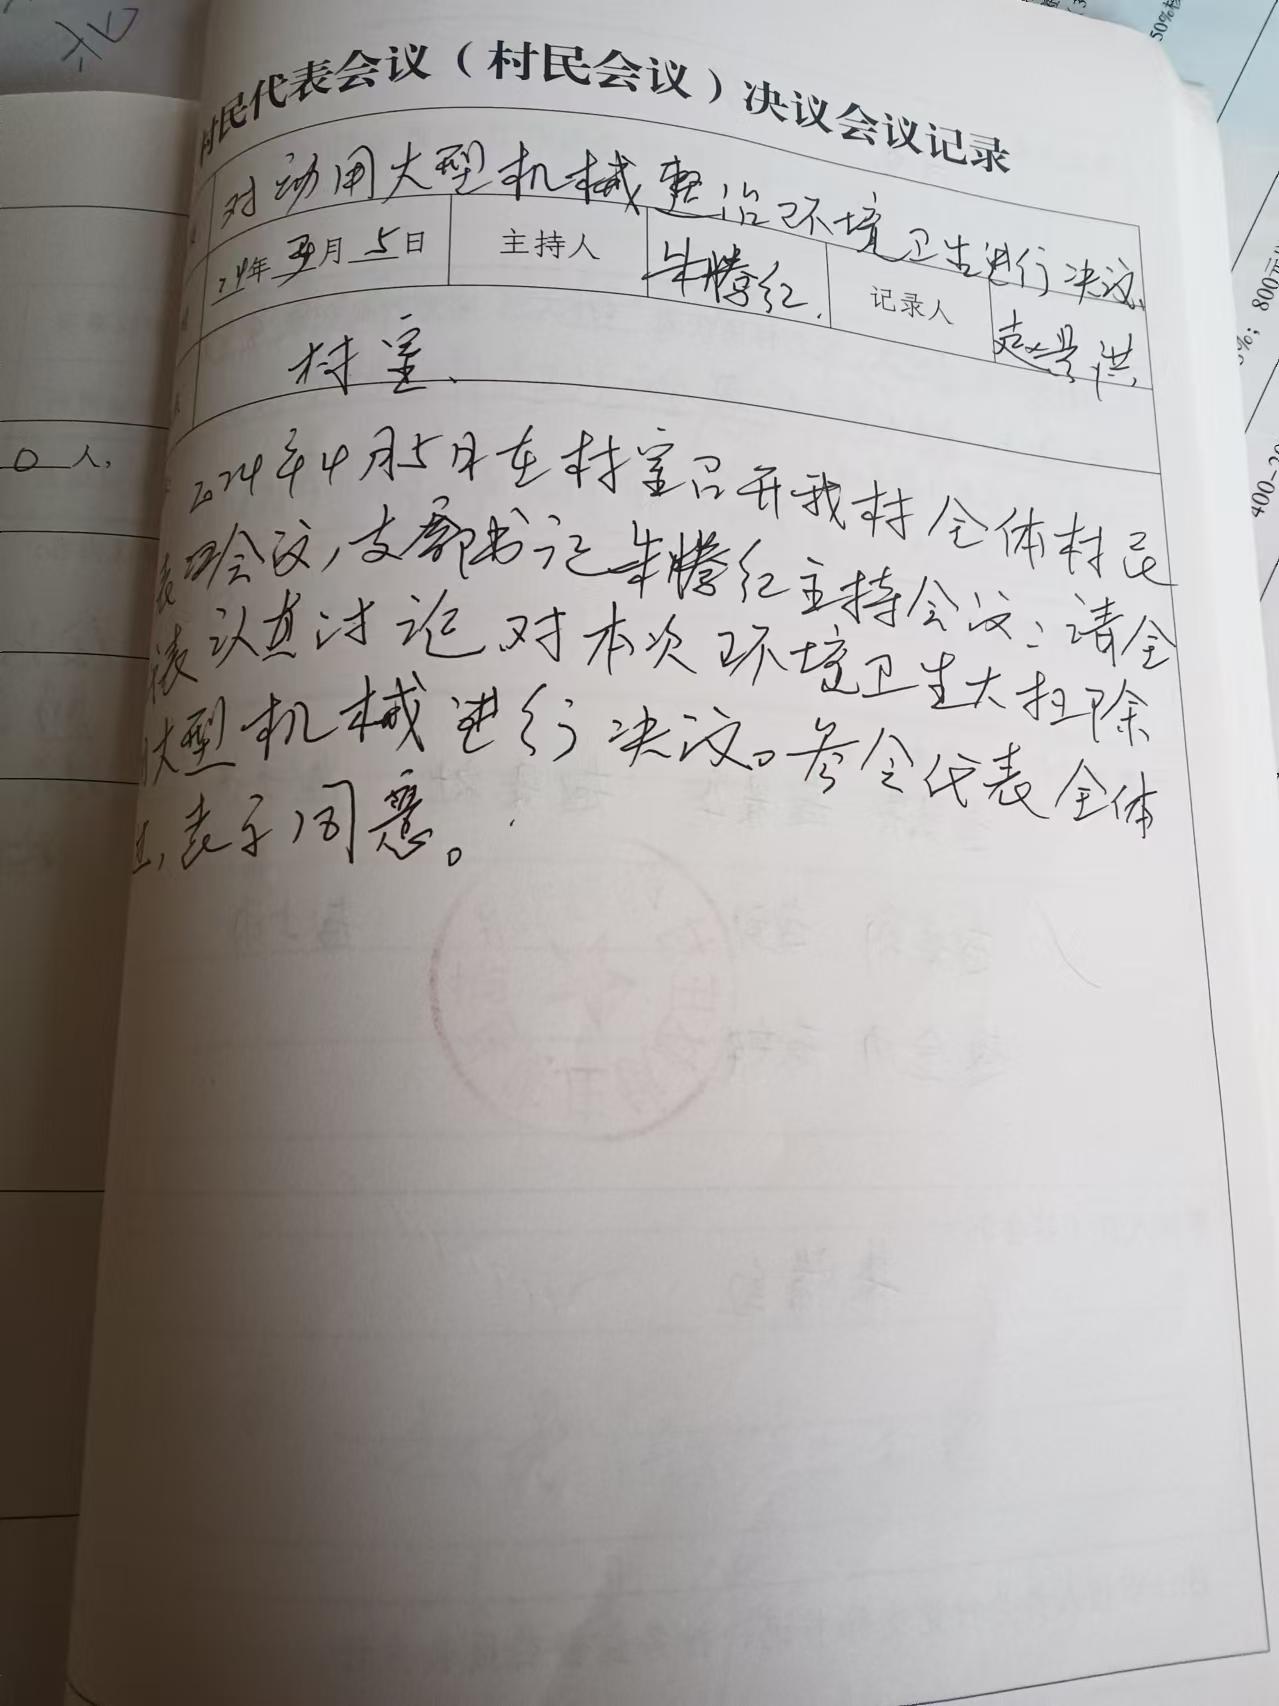 北
村民代表会议（村民会议）决议会议记录
对动用大型机械整治环境卫生进行决议、
24年 月5日 主持人 朱腾红. 记录人 赵景洪.
村室、
0人，
2024年4月5日在村室召开我村全体村民
表会议，支部书记朱腾红主持会议：请全
表认真讨论对本次环境卫生大扫除
大型机械进行决议。参会代表全体
表示同意。
50%
%；800元
400-